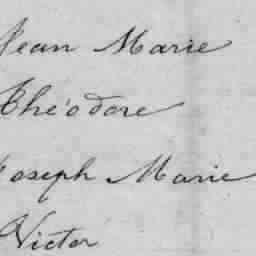 Jean Marie
Théodore
Joseph Marie
Victor